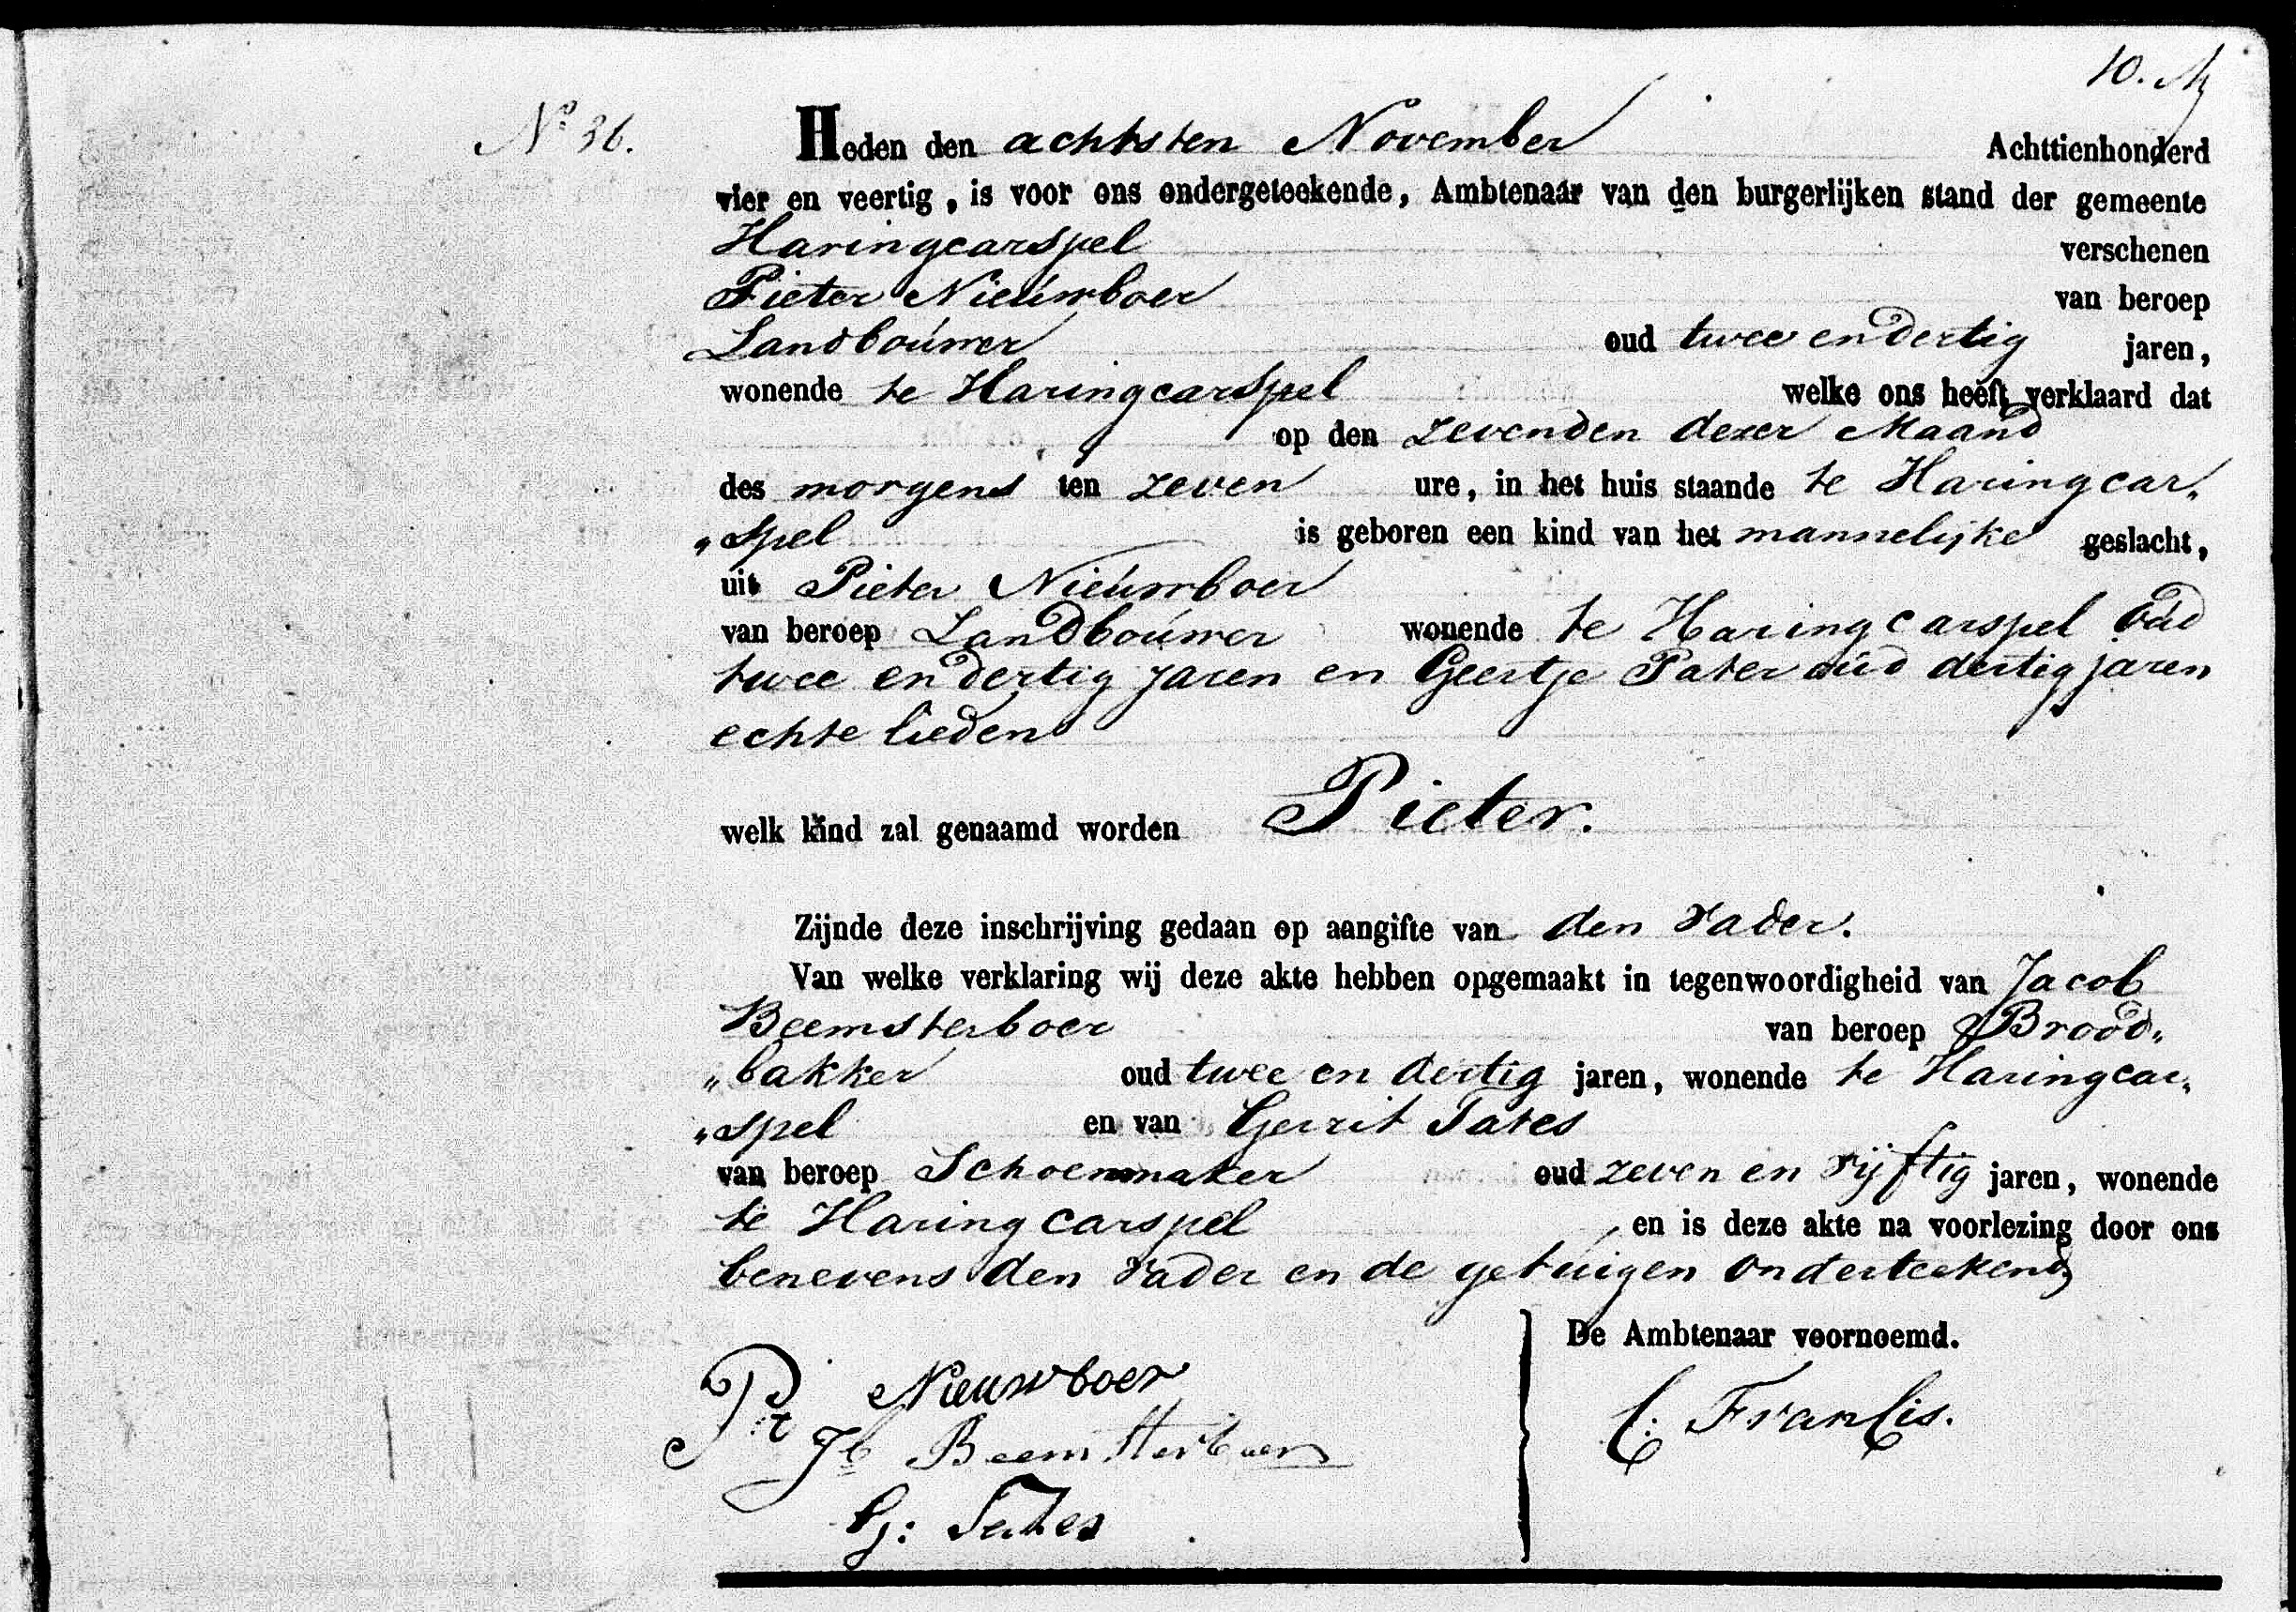 10.
N.º 36.
Heden den achtsten November Achttienhonderd
vier en veertig, is voor ons ondergeteekende, Ambtenaar van den burgerlijken stand der gemeente
Haringcarspel verschenen
Pieter Nieúwboer van beroep
Landboúwer oud twee en dertig jaren,
wonende te Haringcarspel welke ons heeft verklaard dat
op den zevenden dezer Maand
des morgens ten zeven ure, in het huis staande te Haringcar„
„spel is geboren een kind van het mannelijke geslacht,
uit Pieter Nieúwboer
van beroep Landboúwer wonende te Haringcarspel oúd
twee en dertig jaren en Geertje Pater oúd dertig jaren
echte lieden
welk kind zal genaamd worden Pieter.
Zijnde deze inschrijving gedaan op aangifte van den vader.
Van welke verklaring wij deze akte hebben opgemaakt in tegenwoordigheid van Jacob
Beemsterboer van beroep Brood„
„bakker oud twee en dertig jaren, wonende te Haringcar„
„spel en van Gerrit Tates
van beroep Schoenmaker oud zeven en vijftig jaren, wonende
te Haringcarspel en is deze akte na voorlezing door ons
benevens den vader en de getúigen onderteekend
De Ambtenaar voornoemd.
Pt Nieuwboer
C. Francis.
Jb Beemsterboer
G: Tates